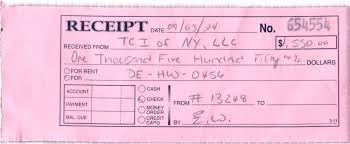 RECEIPT DATE 09/03/24 No. 654554
RECEIVED FROM TCI of NY, LLC $1,550.00
One Thousand Five Hundred Fifty DOLLARS
FOR RENT
FOR DE-HW-0454
ACCOUNT CASH
PAYMENT CHECK FROM # 13248
BAL. DUE MONEY ORDER
CREDIT CARD BY E.W.
3-11